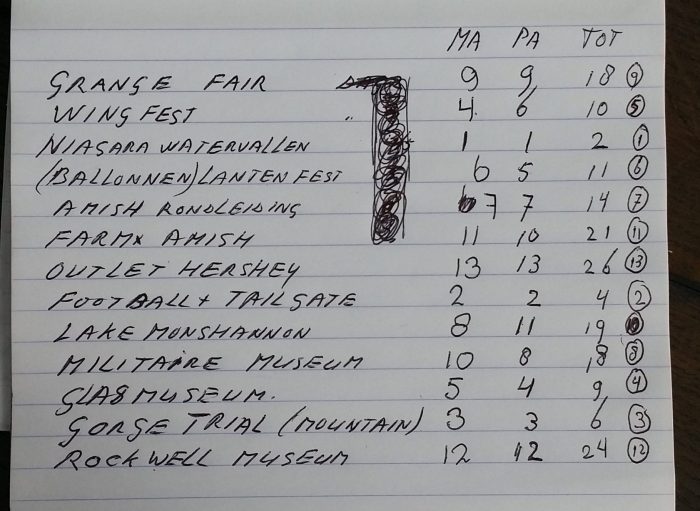 MA PA TOT
GRANGE FAIR 9 9 18 9
WINGFEST 4 6 10 5
NIAGARA WATERVALLEN 1 1 2 1
(BALLONNEN) LANTENFEST 6 5 11 6
AMISH RONDLEIDING 7 7 14 7
FARM AMISH 11 10 21 11
OUTLET HERSHEY 13 13 26 13
FOOTBALL + TAILGATE 2 2 4 2
LAKE MONSHANNON 8 11 19 10
MILITAIRE MUSEUM 10 8 18 8
GLASMUSEUM. 5 4 9 4
GORGE TRIAL (MOUNTAIN) 3 3 6 3
ROCKWELL MUSEUM 12 12 24 12